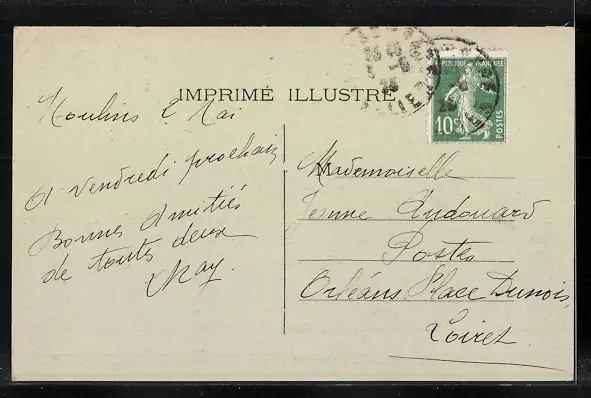 IMPRIMÉ ILLUSTRÉ
REPUBLIQUE FRANÇAISE
10c
POSTES
Moulins 2 Mai
A vendredi prochain
Bonnes Amitiés
de toutes deux
May.
Mademoiselle
Jeanne Audouard
Postes
Orléans Place Dunois,
Loiret